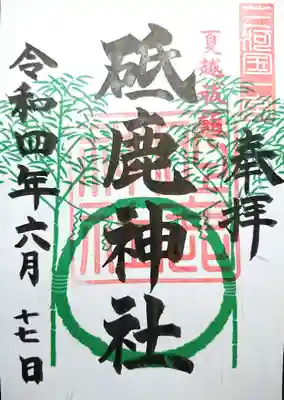 三河国一宮
奉拝
夏越祓
砥鹿神社
令和四年六月十七日